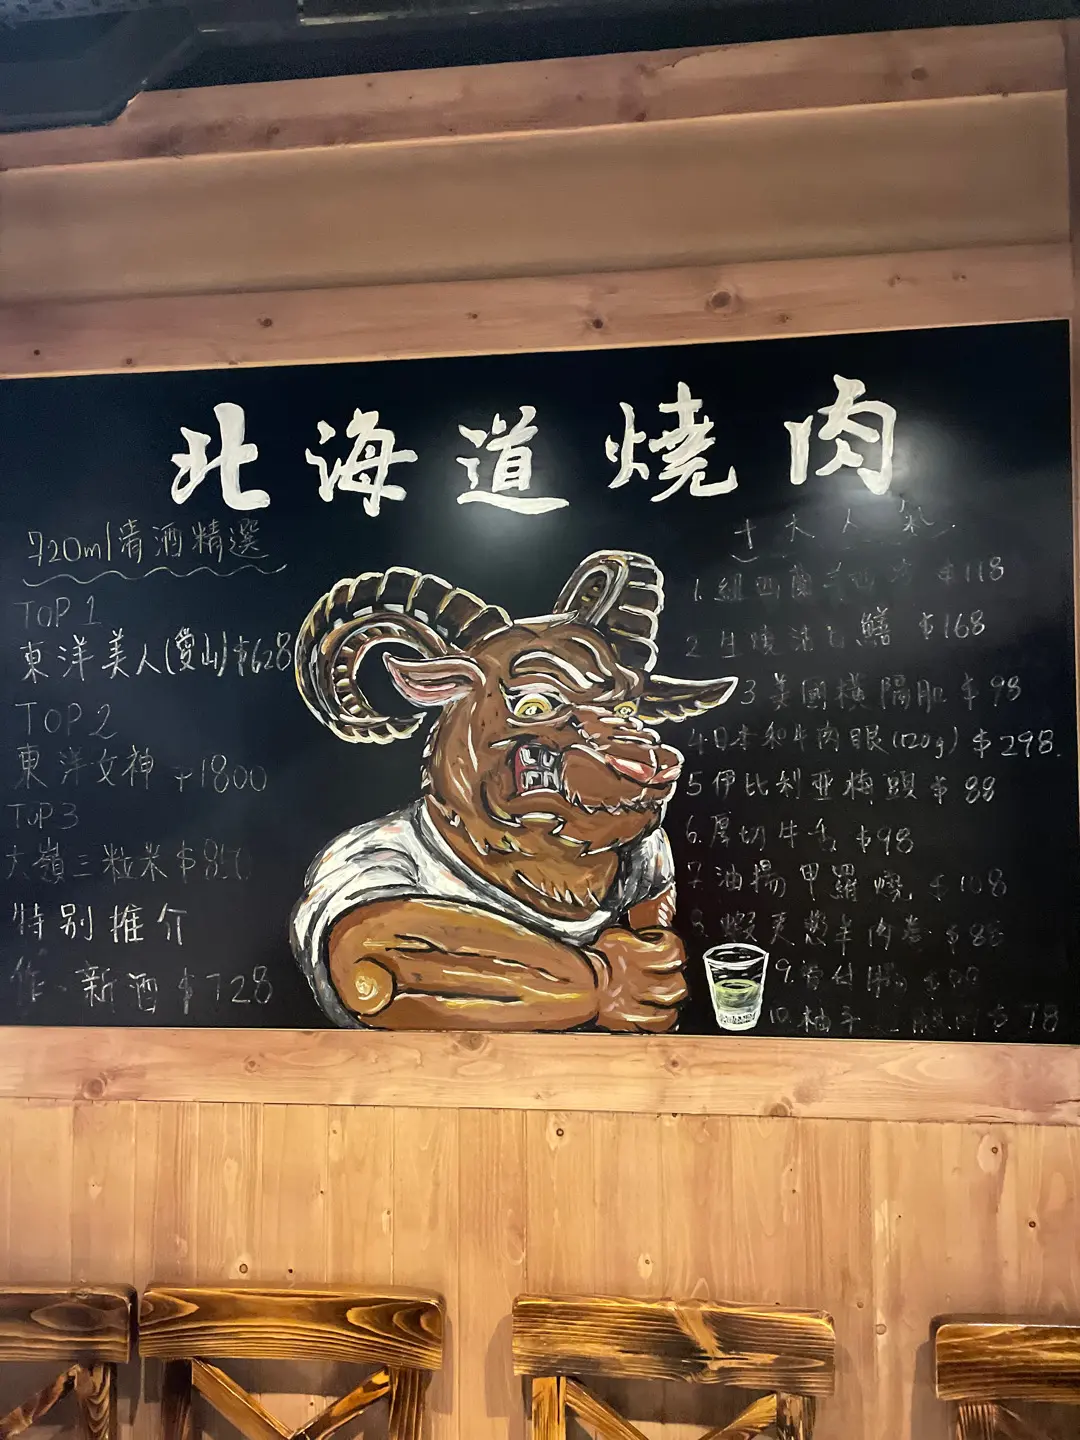 北海道燒肉
720ml清酒精選
TOP 1
東洋美人(愛山)$628
TOP 2
東洋女神 $1800
TOP 3
大嶺三粒米 $8
特别推介
作·新酒 $728
十大人氣
1. 紐西蘭 $118
2 生燒 鱔 $168
3 美國橫隔肌 $98
4.日本和牛肉眼(120g) $298.
5 伊比利亞梅頭 $88
6.厚切牛舌 $98
7.油揚甲羅燒 $108
8. 蝦夷葱羊肉卷 $88
9.
10.柚子 $78